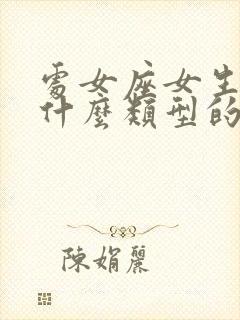 處女座女生
什麼類型的
陳娟麗